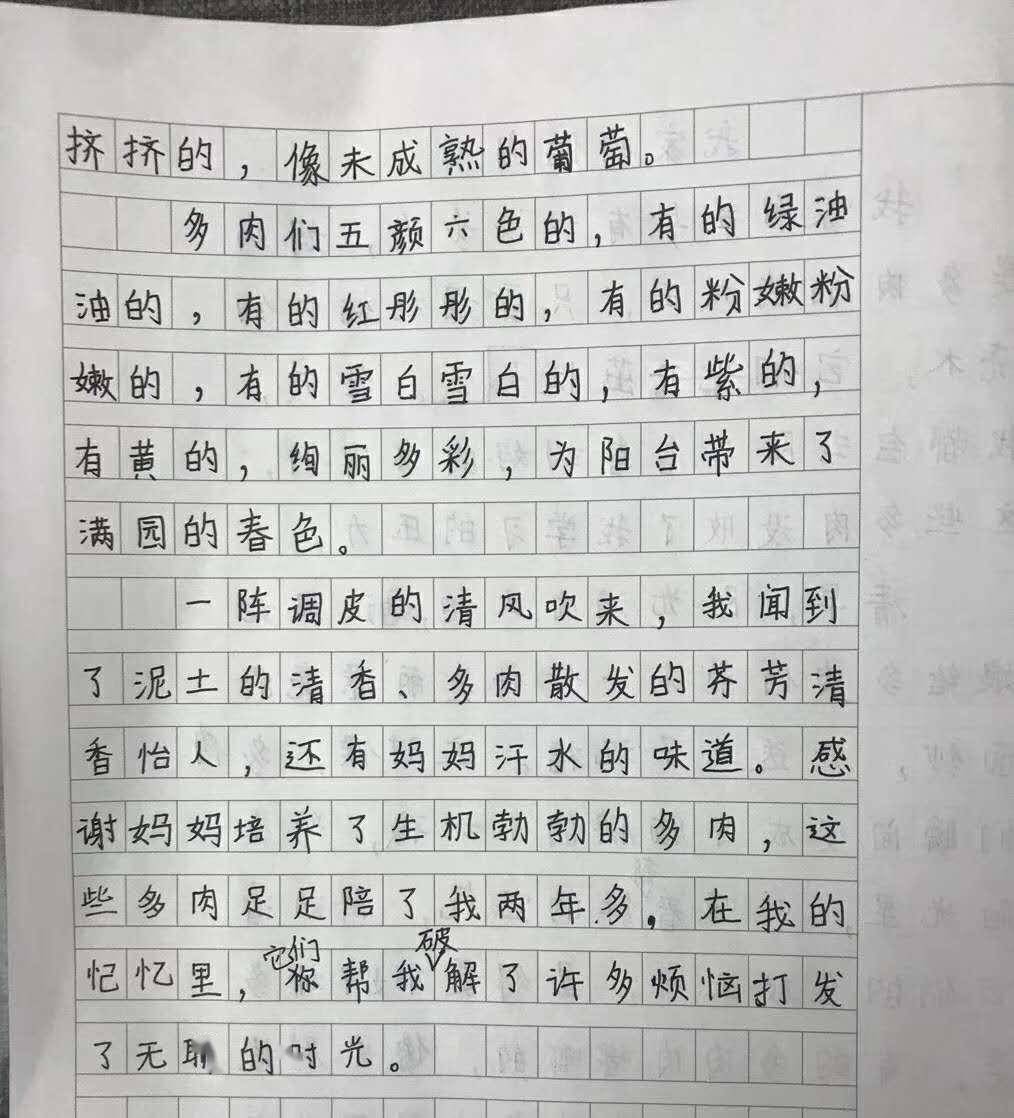 挤挤的，像未成熟的葡萄。
多肉们五颜六色的，有的绿油
油的，有的红彤彤的，有的粉嫩粉
嫩的，有的雪白雪白的，有紫的，
有黄的，绚丽多彩，为阳台带来了
满园的春色。
一阵调皮的清风吹来，我闻到
了泥土的清香、多肉散发的芬芳清
香怡人，还有妈妈汗水的味道。感
谢妈妈培养了生机勃勃的多肉，这
些多肉足足陪了我两年多，在我的
记忆里，它们帮我破解了许多烦恼打发
了无聊的时光。